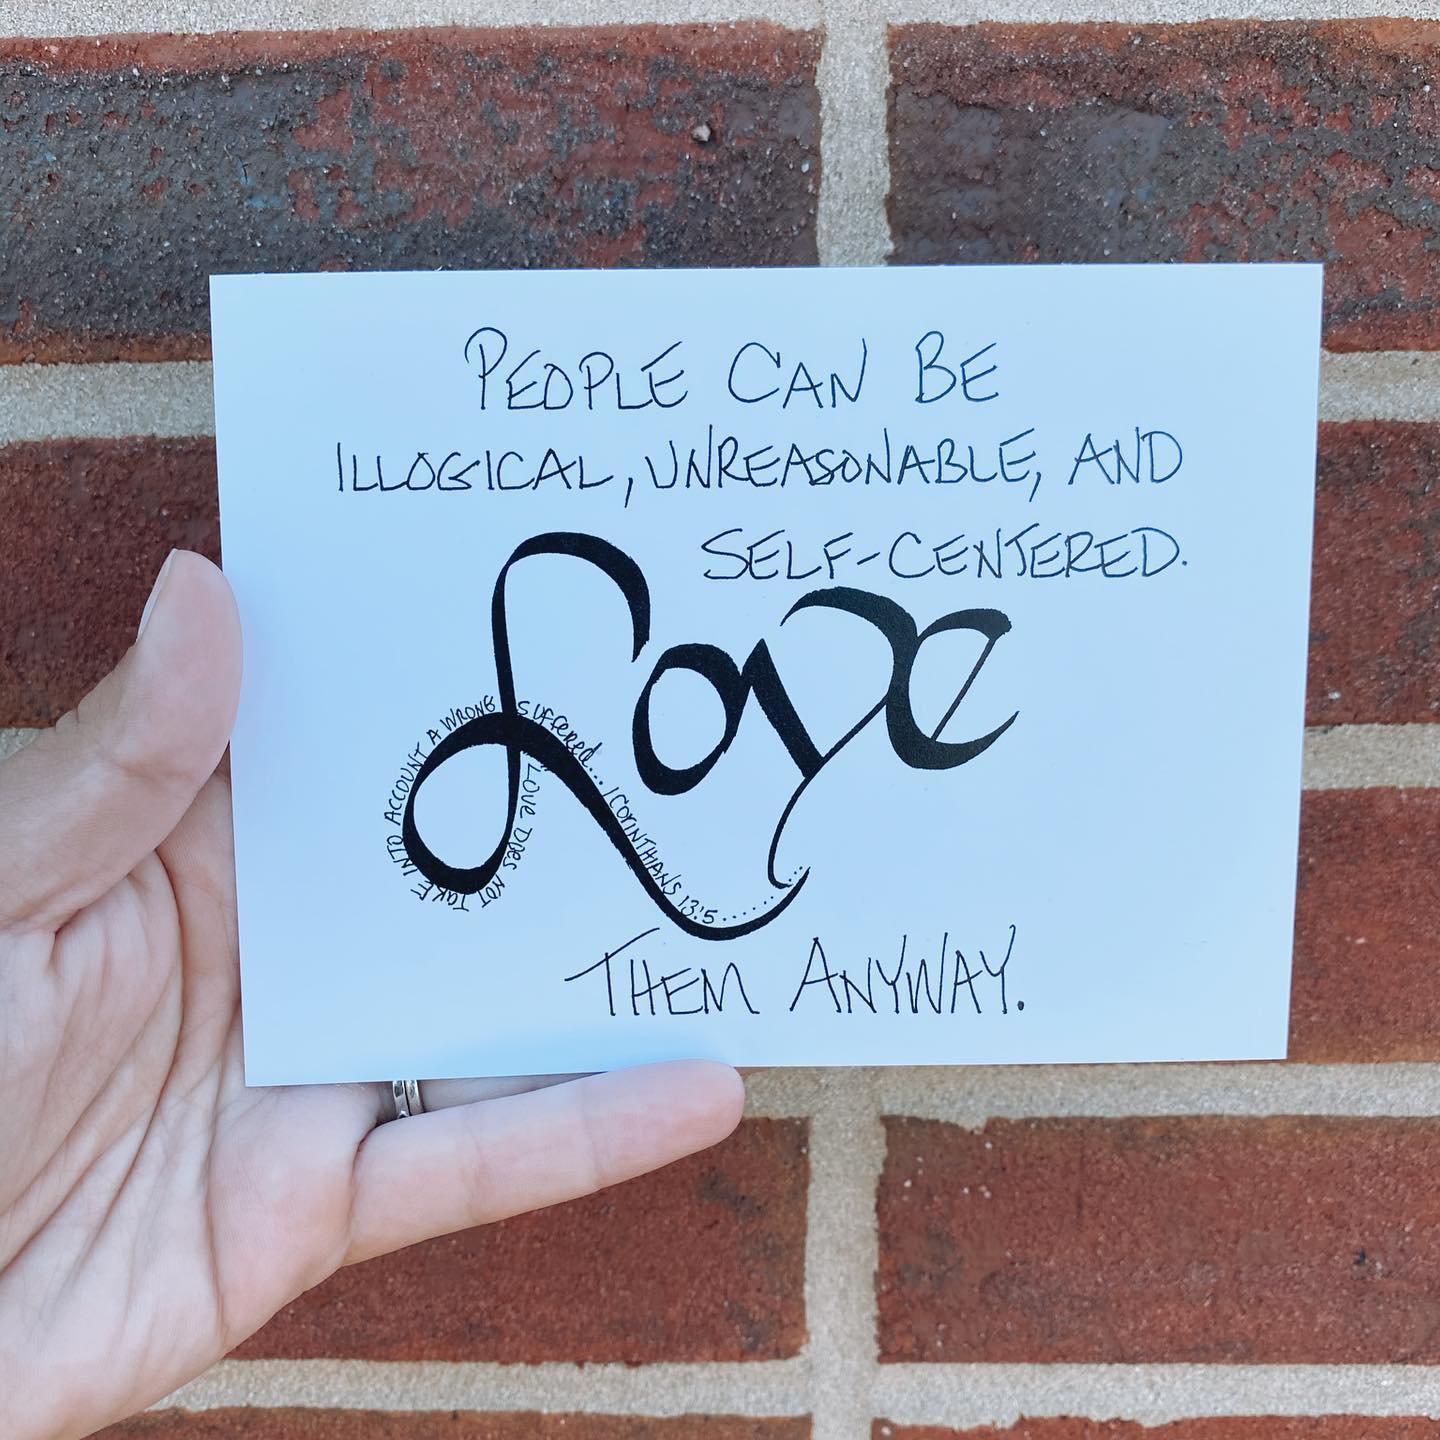 PEOPLE CAN BE
ILLOGICAL, UNREASONABLE, AND
SELF-CENTERED.
Love
"Love Does NOT TAKE INTO ACCOUNT A WRONG SUFFERED... 1 CORINTHIANS 13:5
THEM ANYWAY.